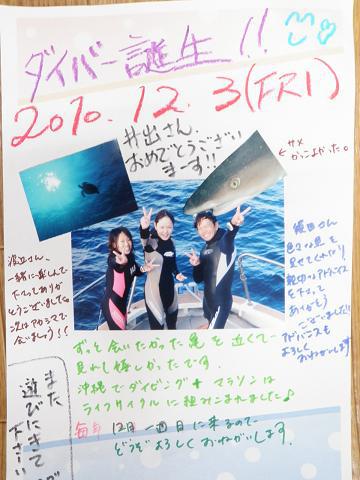 ダイバー誕生!!
2010.12.3(FRI)
井出さん、
おめでとうござい
まーす!!
←サメ
かっこよかった。
渡辺さん、
一緒に楽しんで
下さってありが
とうございました。
会いましょう!!
色々な魚を
見せてくれたり
親切にアドバイス
を下さって
ありがとう
ございました!!
アドバンスも
よろしく
おねがいします。
ずっと会いたかった亀を近くで
見れし嬉しかったです。
沖縄でダイビング+マラソンは
ライフサイクルに組みこまれました♪
毎年12月一週目に来るので
どうぞよろしくおねがいします。
また
遊びにきて
下さい